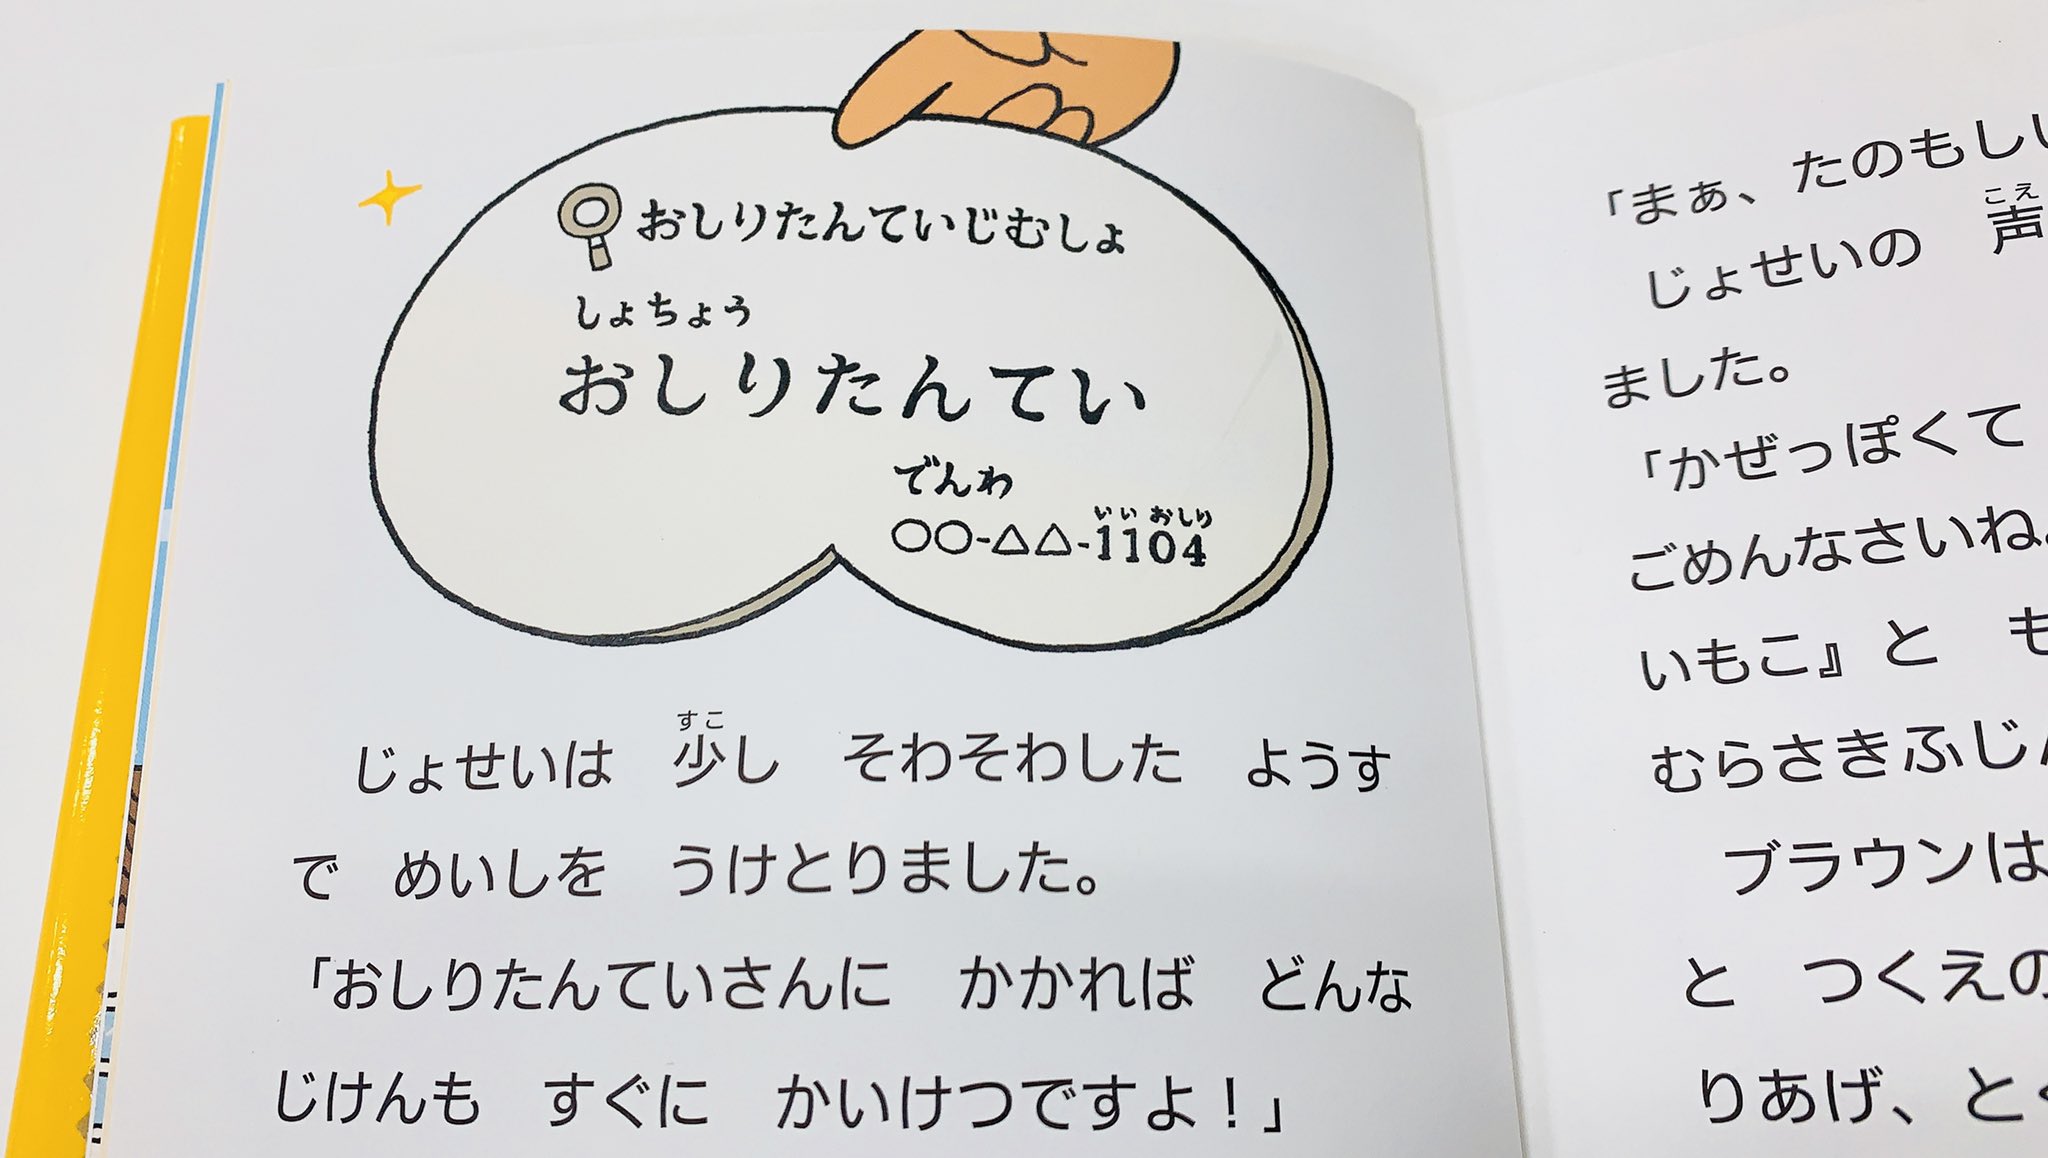 おしりたんていじむしょ
しょちょう
おしりたんてい
でんわ
いい おしり
○○-△△-1104
すこ
じょせいは 少し そわそわした ようす
で めいしを うけとりました。
「おしりたんていさんに かかれば どんな
じけんも すぐに かいけつですよ！」
「まぁ、たのもしい
こえ
じょせいの 声
ました。
「かぜっぽくて
ごめんなさいね。
いもこ』と も
むらさきふじん
ブラウンは
と つくえの
りあげ、と